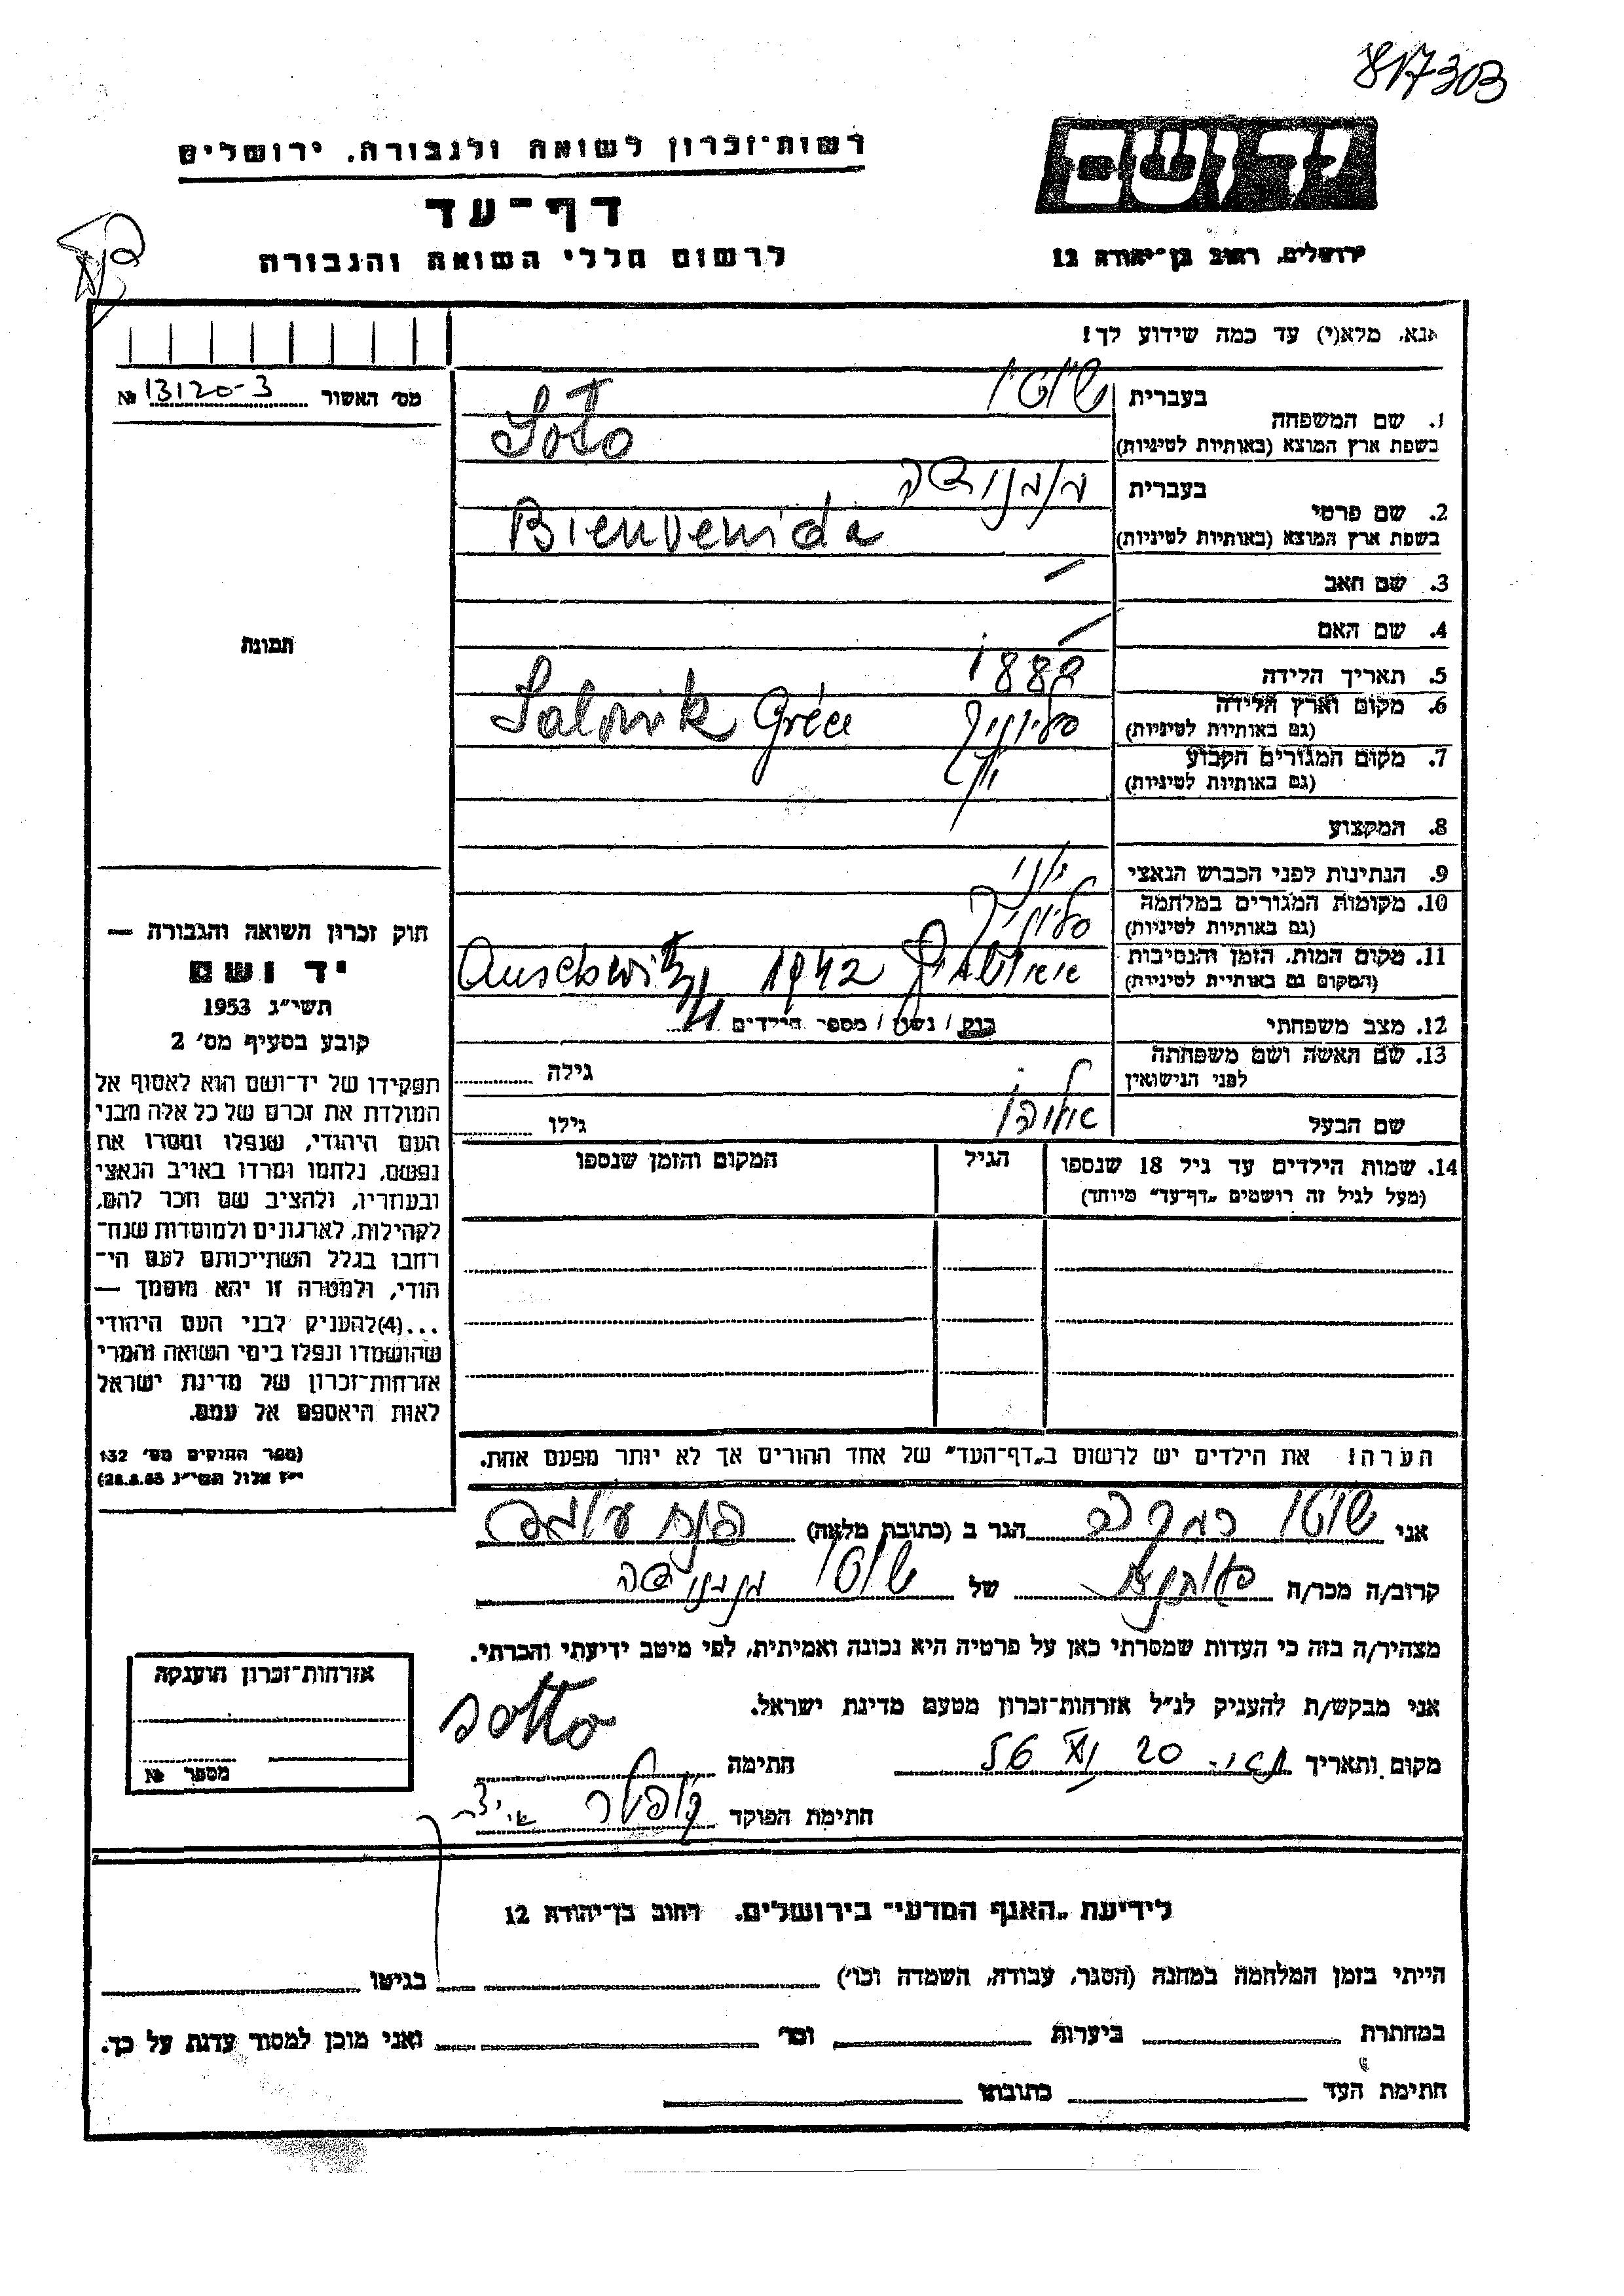 817303
יד ושם
רשות־זכרון לשואה ולגבורה, ירושלים
דף־עד
לרשום חללי השואה והגבורה
ירושלים, רחוב בן־יהודה 12
אנא, מלא(י) עד כמה שידוע לך!
מס׳ האשור № 13120-3
1. שם המשפחה
בעברית
בשפת ארץ המוצא (באותיות לטיניות)
Soto
2. שם פרטי
בעברית
בשפת ארץ המוצא (באותיות לטיניות)
Bienvenida
3. שם האב
4. שם האם
תמונה
5. תאריך הלידה 1888
6. מקום וארץ הלידה
(גם באותיות לטיניות)
סלוניק Salonik Gréce
יון
7. מקום המגורים הקבוע
(גם באותיות לטיניות)
8. המקצוע
9. הנתינות לפני הכבוש הנאצי יוני
10. מקומות המגורים במלחמה
(גם באותיות לטיניות)
סלוניק
11. מקום המות, הזמן והנסיבות
(המקום גם באותיות לטיניות)
1942 Auschwitz
12. מצב משפחתי רוק / נשוי / מספר הילדים 4
13. שם האשה ושם משפחתה
לפני הנישואין
גילה
שם הבעל
גילו
14. שמות הילדים עד גיל 18 שנספו
(מעל לגיל זה רושמים „דף־עד״ מיוחד)
הגיל
המקום והזמן שנספו
הערה: את הילדים יש לרשום ב„דף־העד״ של אחד ההורים אך לא יותר מפעם אחת.
חוק זכרון השואה והגבורה —
יד ושם
תשי״ג 1953
קובע בסעיף מס׳ 2
תפקידו של יד־ושם הוא לאסוף אל
המולדת את זכרם של כל אלה מבני
העם היהודי, שנפלו ומסרו את
נפשם, נלחמו ומרדו באויב הנאצי
ובעוזריו, ולהציב שם וזכר להם,
לקהילות, לארגונים ולמוסדות שנח־
רבו בגלל השתייכותם לעם הי־
הודי, ולמטרה זו יהא מוסמך —
...(4)להעניק לבני העם היהודי
שהושמדו ונפלו בימי השואה והמרי
אזרחות־זכרון של מדינת ישראל
לאות היאספם אל עמם.
(ספר החוקים מס׳ 132
י״ז אלול תשי״ג 28.8.53)
אני הגר ב (כתובת מלאה)
קרוב/ה מכר/ה של
מצהיר/ה בזה כי העדות שמסרתי כאן על פרטיה היא נכונה ואמיתית, לפי מיטב ידיעתי והכרתי.
אני מבקש/ת להעניק לנ״ל אזרחות־זכרון מטעם מדינת ישראל.
מקום ותאריך 20 חתימה sotto
חתימת הפוקד
אזרחות־זכרון הוענקה
מספר №
לידיעת „האגף המדעי״ בירושלים. רחוב בן־יהודה 12
הייתי בזמן המלחמה במחנה (הסגר, עבודה, השמדה וכו׳) בגיטו
במחתרת ביערות וכו׳ ואני מוכן למסור עדות על כך.
חתימת העד כתובתו